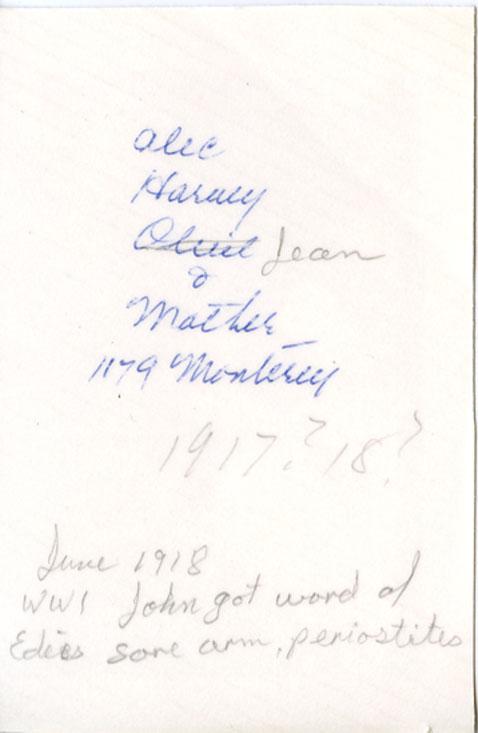 Alec
Harvey
Jean
&
Mother
1179 Monterey
1917? 18?
June 1918
WW1 John got word of
Edies sore arm, periostites